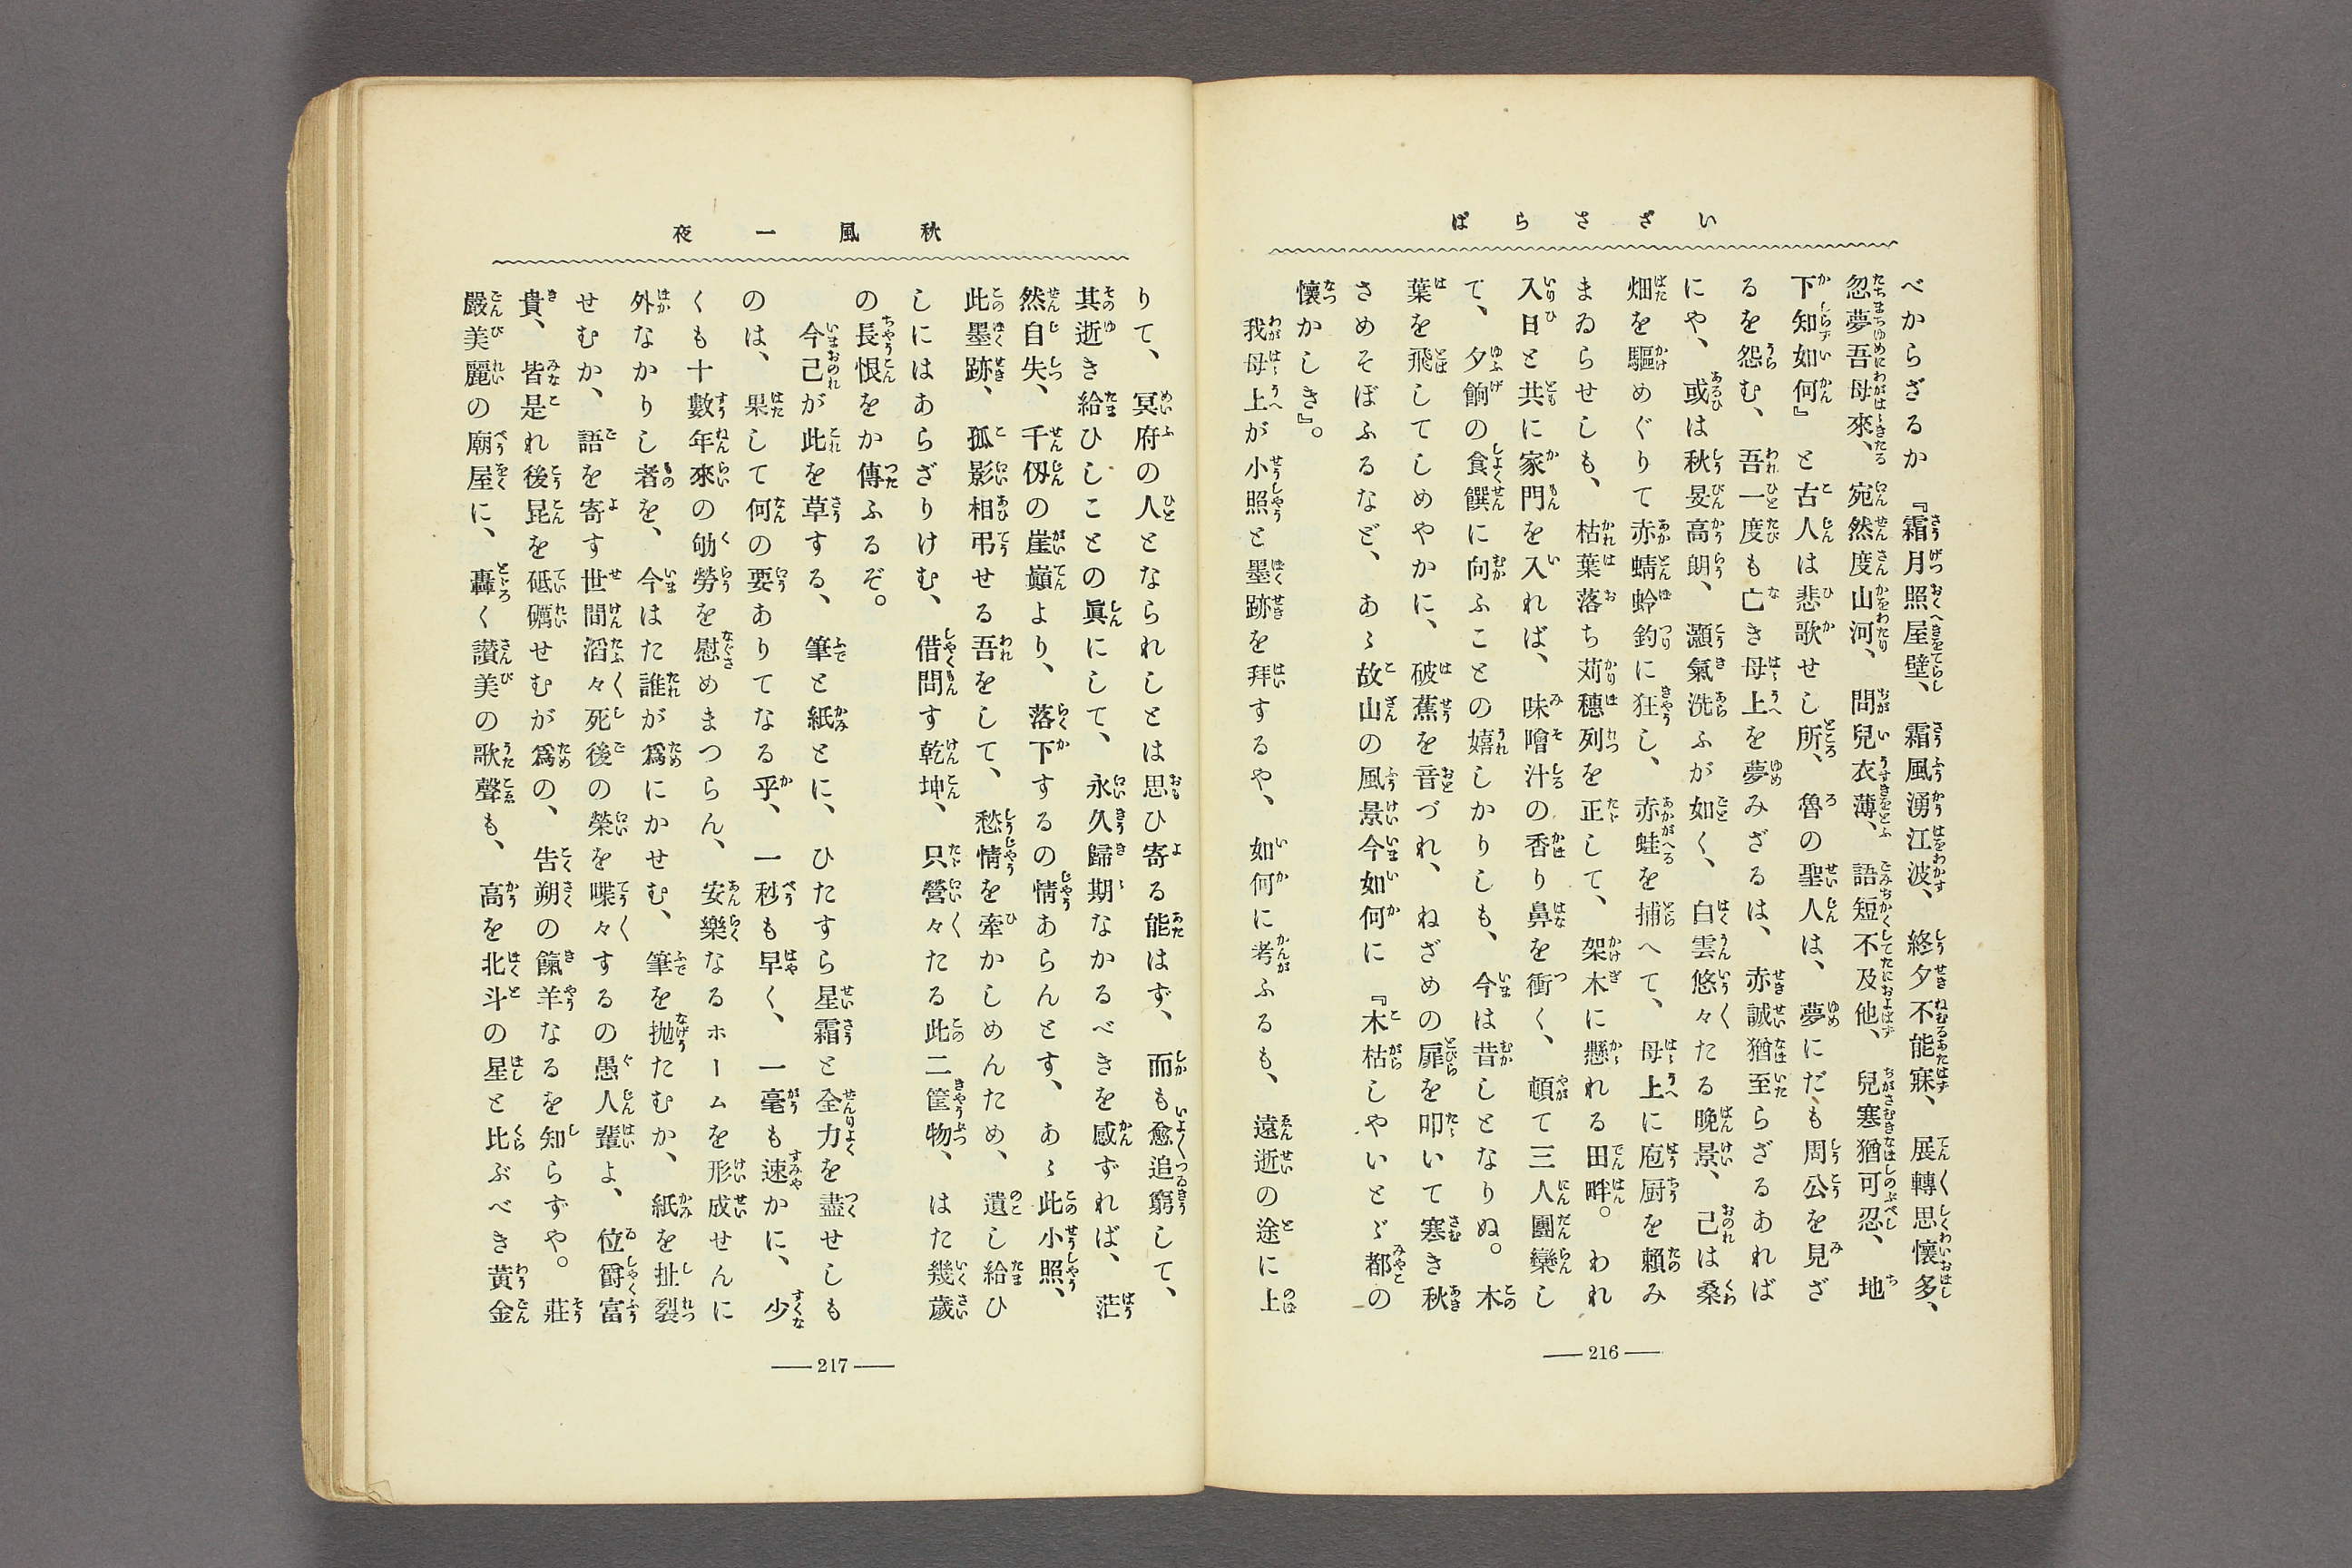 いざさらば
べからざるか『霜月照屋壁、霜風湧江波、終夕不能寐、展轉思懷多、
忽夢吾母來、宛然度山河、問兒衣薄、語短不及他、兒寒猶可忍、地
下知如何』と古人は悲歌せし所、魯の聖人は、夢にだも周公を見ざ
るを怨む、吾一度も亡き母上を夢みざるは、赤誠猶至らざるあれば
にや、或は秋旻高朗、灝氣洗ふが如く、白雲悠々たる晩景、己は桑
畑を驅めぐりて赤蜻蛉釣に狂し、赤蛙を捕へて、母上に庖厨を賴み
まゐらせしも、枯葉落ち苅穗列を正して、架木に懸れる田畔。われ
入日と共に家門を入れば、味噌汁の香り鼻を衝く、頓て三人團欒し
て、夕餉の食饌に向ふことの嬉しかりしも、今は昔しとなりぬ。木
葉を飛してしめやかに、破蕉を音づれ、ねざめの扉を叩いて寒き秋
さめそぼふるなど、あゝ故山の風景今如何に『木枯しやいとゞ都の
懷かしき』。
我母上が小照と墨跡を拜するや、如何に考ふるも、遠逝の途に上
—216—
秋風一夜
りて、冥府の人となられしとは思ひ寄る能はず、而も愈追窮して、
其逝き給ひしことの眞にして、永久歸期なかるべきを感ずれば、茫
然自失、千仭の崖巓より、落下するの情あらんとす、あゝ此小照、
此墨跡、孤影相弔せる吾をして、愁情を牽かしめんため、遺し給ひ
しにはあらざりけむ、借問す乾坤、只營々たる此二筐物、はた幾歲
の長恨をか傳ふるぞ。
今己が此を草する、筆と紙とに、ひたすら星霜と全力を盡せしも
のは、果して何の要ありてなる乎、一秒も早く、一毫も速かに、少
くも十數年來の劬勞を慰めまつらん、安樂なるホームを形成せんに
外なかりし者を、今はた誰が爲にかせむ、筆を抛たむか、紙を扯裂
せむか、語を寄す世間滔々死後の榮を喋々するの愚人輩よ、位爵富
貴、皆是れ後昆を砥礪せむが爲の、告朔の餼羊なるを知らずや。莊
嚴美麗の廟屋に、轟く讃美の歌聲も、高を北斗の星と比ぶべき黃金
—217—